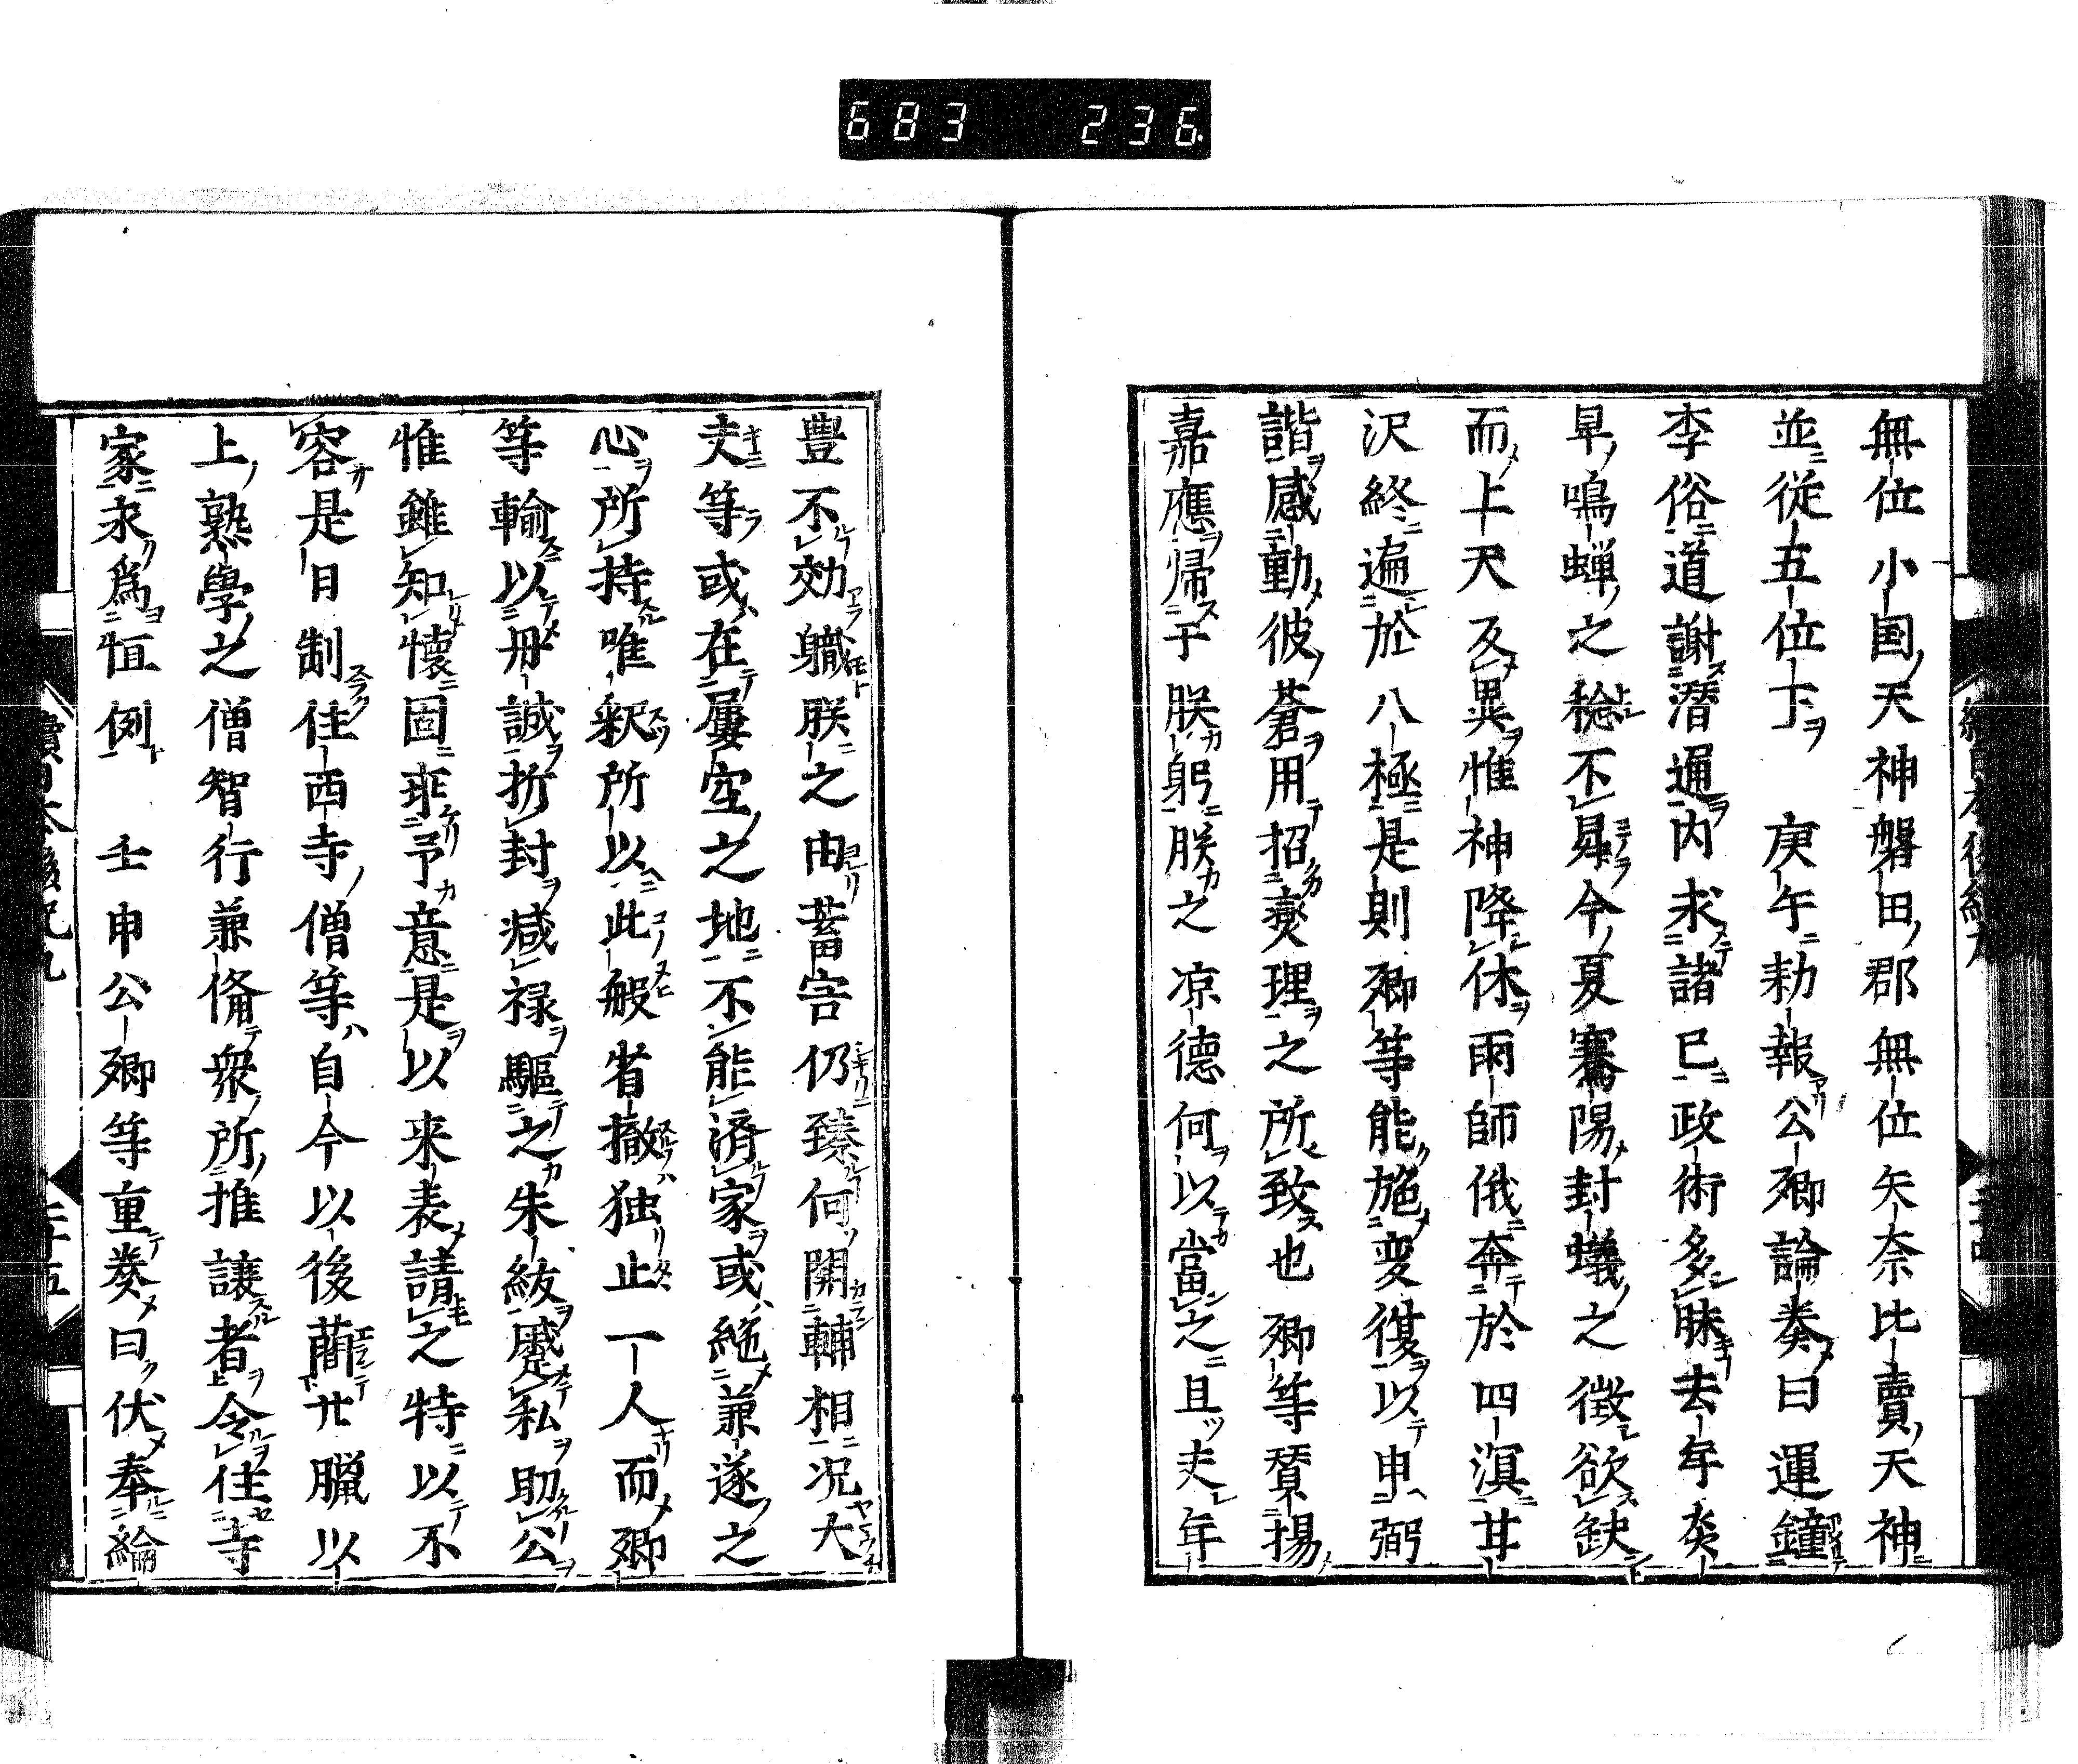 683 236
無位小国天神磐田郡無位矢奈比賣天神
並從五位下 庚午勅報公卿論奏曰運鐘
李俗道謝潜通内求諸已政術多昧去年炎
旱鳴蝉之稔不昇今夏騫陽封蟻之徴欲缺
而上天反異惟神降休雨師俄奔於四溟甘
沢終遍於八極是則卿等能施変復以申弼
諧感動彼蒼用招爕理之所致也卿等賛揚
嘉應帰于朕躬朕之凉德何以當之且夫年
豊不効職朕之由蓄害仍臻何開輔相况大
夫等或在屢空之地不能済家或絁兼遂之
心所持唯釈所以此般省撤独止一人而卿
等輸以丹誠折封减禄驅之朱紱蹙私助公
惟雖知懐固乖予意是以来表請之特以不
容是日制住西寺僧等自今以後蕳廿臘以
上熟學之僧智行兼俻衆所推讓者令住寺
家永爲恒例 壬申公卿等重奏曰伏奉綸